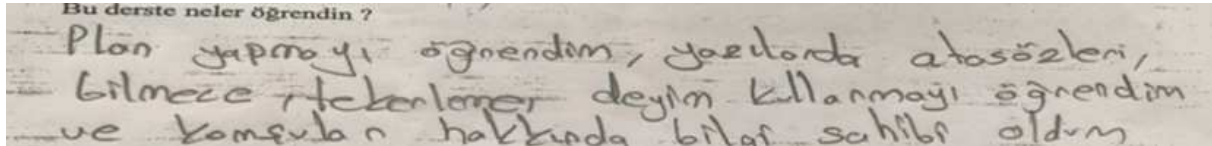 Bu derste neler öğrendin ?
Plan yapmayı öğrendim, yazılarda atasözleri,
bilmece, tekerlemer deyim kullanmayı öğrendim
ve konular hakkında bilgi sahibi oldum